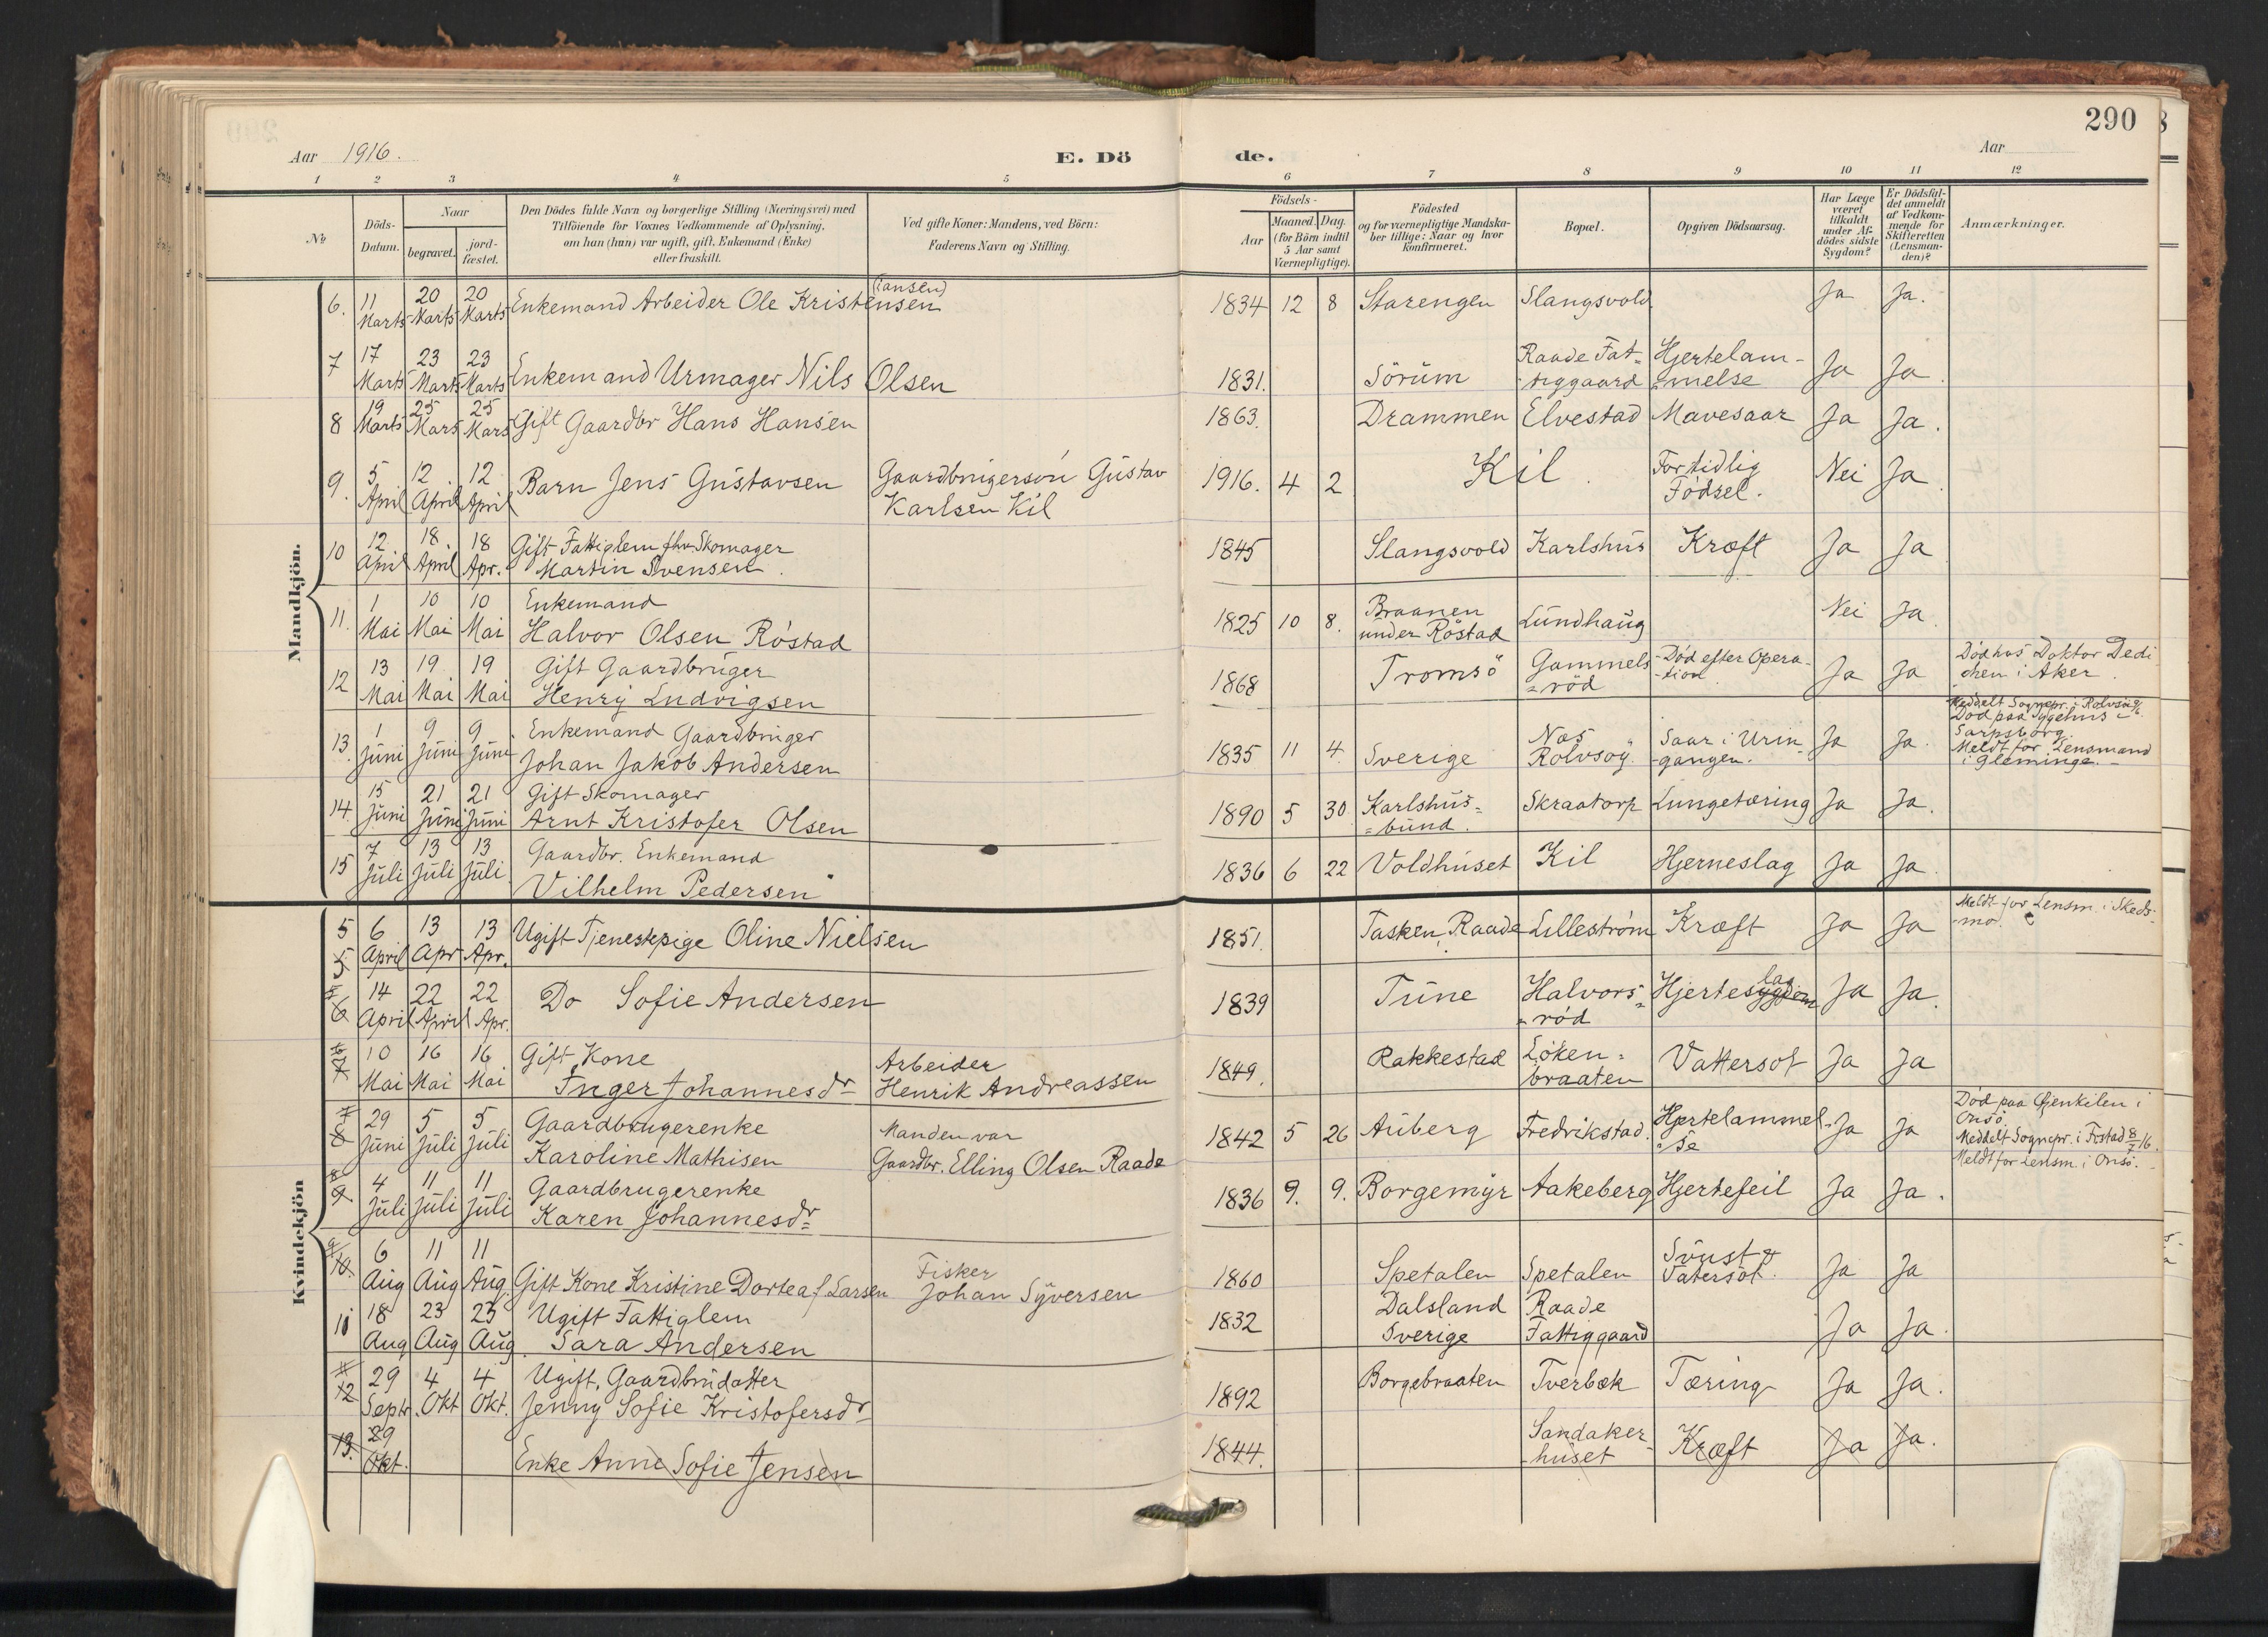 290
Aar 1916. E. Dö de. Aar
1 2 3 4 5 6 7 8 9 10 11 12
No
Döds-
Datum.
Naar
begravet.
jord-
fæstet.
Den Dödes fulde Navn og borgerlige Stilling (Næringsvei) med
Tilföiende for Voxnes Vedkommende af Oplysning,
om han (hun) var ugift, gift, Enkemand (Enke)
eller fraskilt.
Ved gifte Koner: Mandens, ved Börn:
Faderens Navn og Stilling.
Födsels-
Aar
Maaned. Dag.
(for Börn indtil
5 Aar samt
Værnepligtige).
Födested
og for værnepligtige Mandska-
ber tillige: Naar og hvor
konfirmeret.
Bopæl.
Opgiven Dödsaarsag.
Har Læge
været
tilkaldt
under Af-
dödes sidste
Sygdom?
Er Dödsfal-
det anmeldt
af Vedkom-
mende for
Skifteretten
(Lensman-
den)?
Anmærkninger.
Mandkjön.
6. 11 Marts 20 Marts 20 Marts Enkemand Arbeider Ole Kristensen (iansen) 1834 12 8 Starengen Slangsvold Ja Ja.
7 17 Marts 23 Marts 23 Marts Enkemand Urmager Nils Olsen 1831. Sörum Raade Fat-
tiggaard Hjertelam-
melse Ja Ja.
8 19 Marts 25 Mars 25 Mars Gift Gaardbr Hans Hansen 1863. Drammen Elvestad Mavesaar Ja Ja.
9. 5 April 12 April 12 April Barn Jens Gustavsen Gaardbrugersön Gustav
Karlsen Kil 1916. 4 2 Kil. For tidlig
Fødsel. Nei Ja.
10 12 April 18 April 18 Apr. Gift Fattiglem fhv Skomager
Martin Svensen. 1845 Slangsvold Karlshus Kræft Ja Ja
11. 1 Mai 10 Mai 10 Mai Enkemand
Halvor Olsen Röstad 1825 10 8. Braanen
under Röstad Lundhaug Nei Ja.
12 13 Mai 19 Mai 19 Mai Gift Gaardbruger
Henry Ludvigsen 1868 Tromsö Gammels
=röd Död efter Opera-
tion Ja Ja Död hos Doktor Dedi
chen i Aker.
13. 1 Juni 9 Juni 9 Juni Enkemand Gaardbruger
Johan Jakob Andersen 1835 11 4. Sverige Næs
Rolvsöy. Saar i Urin-
gangen. Ja Ja. Meddelt Sognepr. i Rolvsö
Död paa Sygehus i
Sarpsborg.
Meldt for Lensmand
i Gleminge.
14. 15 Juni 21 Juni 21 Juni Gift Skomager
Arnt Kristofer Olsen 1890 5 30 Karlshus-
=bund. Skraatorp Lungetæring Ja Ja.
15 7 Juli 13 Juli 13 Juli Gaardbr. Enkemand
Vilhelm Pedersen 1836 6 22 Voldhuset Kil Hjerneslag Ja Ja.
Kvindekjön
5 5 6 April 13 Apr 13 Apr. Ugift Tjenestepige Oline Nielsen 1851. Tasken, Raade Lilleström Kræft Ja Ja Meldt for Lensm. i Skeds-
mo.
6 14 April 22 April 22 Apr. Do Sofie Andersen 1839 Tune Halvors-
=röd Hjertesygdom lag Ja Ja.
6 7 10 Mai 16 Mai 16 Mai Gift Kone
Inger Johannesdr Arbeider
Henrik Andreassen 1849. Rakkestad Löken-
braaten Vattersot Ja Ja
7 8 29 Juni 5 Juli 5 Juli Gaardbrugerenke
Karoline Mathisen Manden var
Gaardbr. Elling Olsen Raade 1842 5 26 Auberg Fredrikstad. Hjertelammel-
se Ja Ja Död paa Gjenkilen i
Onsö.
Meddelt Sognepr. i Frstad 8/7 16.
Meldt for Lensm. i Onsö.
8 9 4 Juli 11 Juli 11 Juli Gaardbrugerenke
Karen Johannesdr 1836 9. 9. Borgemyr Aakeberg Hjertefeil Ja Ja.
9 10. 6 Aug 11 Aug 11 Aug. Gift Kone Kristine Dortea f Larsen Fisker
Johan Syversen 1860 Spetalen Spetalen Vatersot. Ja Ja
10 18 Aug 23 Aug 23 Aug. Ugift Fattiglem
Sara Andersen 1832 Dalsland
Sverige Raade
Fattiggaard Ja Ja.
11 12 29 Septr. 4 Okt 4 Okt. Ugift. Gaardbrudatter
Jenny Sofie Kristofersdr 1892 Borgebraaten Tverbæk Tæring Ja Ja.
13. 29 Okt. Enke Anne Sofie Jensen 1844. Sandaker-
huset Kræft Ja Ja.